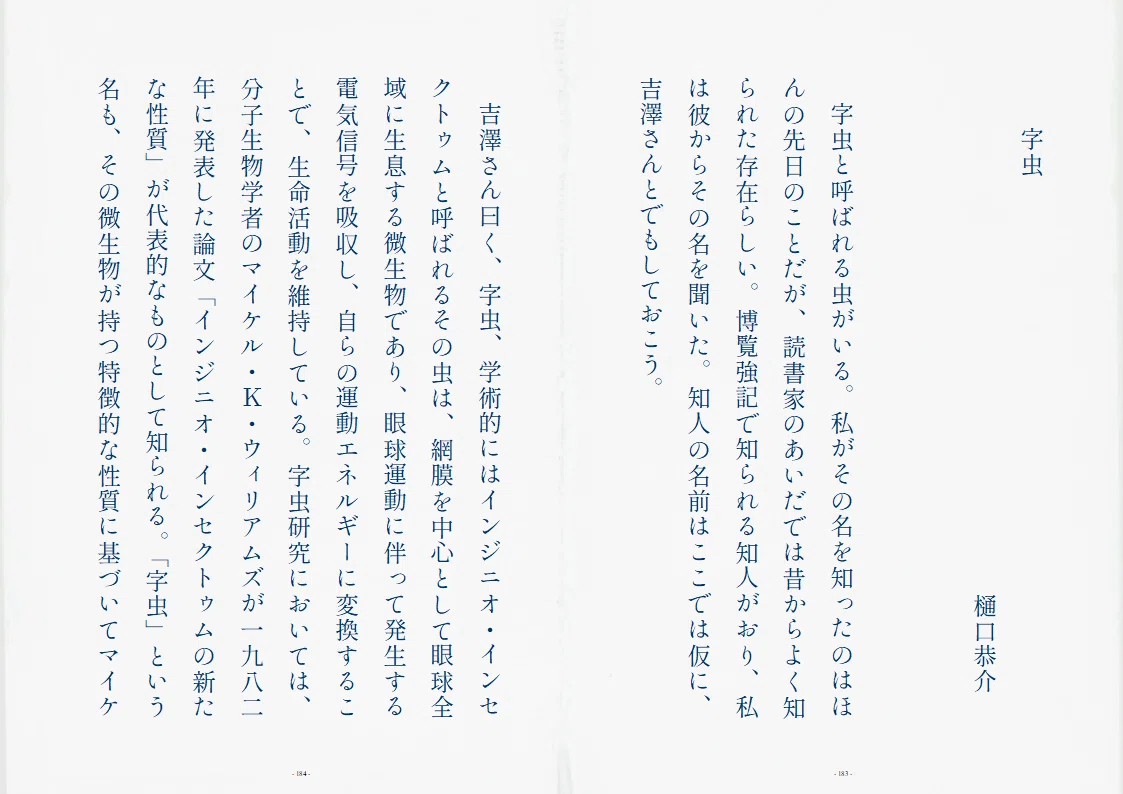 字虫
樋口恭介
字虫と呼ばれる虫がいる。私がその名を知ったのはほ
んの先日のことだが、読書家のあいだでは昔からよく知
られた存在らしい。博覧強記で知られる知人がおり、私
は彼からその名を聞いた。知人の名前はここでは仮に、
吉澤さんとでもしておこう。
- 183 -
吉澤さん曰く、字虫、学術的にはインジニオ・インセ
クトゥムと呼ばれるその虫は、網膜を中心として眼球全
域に生息する微生物であり、眼球運動に伴って発生する
電気信号を吸収し、自らの運動エネルギーに変換するこ
とで、生命活動を維持している。字虫研究においては、
分子生物学者のマイケル・K・ウィリアムズが一九八二
年に発表した論文「インジニオ・インセクトゥムの新た
な性質」が代表的なものとして知られる。「字虫」という
名も、その微生物が持つ特徴的な性質に基づいてマイケ
- 184 -